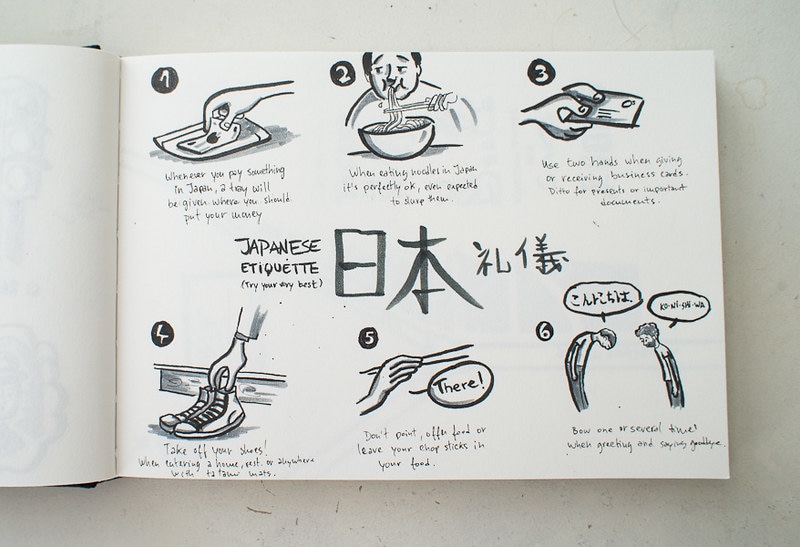 1
Whenever you pay something
in Japan, a tray will
be given where you should
put your money
2
When eating noodles in Japan
it's perfectly ok, even expected
to slurp them.
3
Use two hands when giving
or receiving business cards.
Ditto for presents or important
documents.
JAPANESE
ETIQUETTE
(Try your very best)
日本 礼儀
4
Take off your shoes!
When entering a home, rest. or anywhere
with tatami mats.
5
There!
Don't point, offer food or
leave your chop sticks in
your food.
6
こんにちは.
KO-NI-SHI-WA
Bow one or several time!
When greeting and saying goodbye.